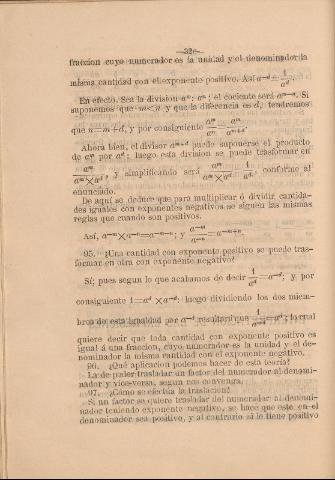 —32—
fraccion cuyo numerador es la unidad y el denominador la
misma cantidad con el exponente positivo. Así a^{-d} = 1/a^d.
En efecto. Sea la division a^m: a^n; el cociente será a^{m-n}. Si
suponemos que m<n y que la diferencia es d, tendremos
que n=m+d, y por consiguiente a^m/a^n = a^m/a^{m+d}.
Ahora bien, el divisor a^{m+d} puede suponerse el producto
de a^m por a^d; luego esta division se puede trasformar en
a^m/(a^m×a^d), y simplificando será a^m/(a^m×a^d) = 1/a^d, conforme al
enunciado.
De aquí se deduce que para multiplicar ó dividir cantida-
des iguales con exponentes negativos se siguen las mismas
reglas que cuando son positivos.
Así, a^{-m}×a^{-n}=a^{-m-n}; y a^{-m}/a^{-n} = a^{-m+n}
95. ¿Una cantidad con exponente positivo se puede tras-
formar en otra con exponente negativo?
Sí; pues segun lo que acabamos de decir 1/a^d = a^{-d}; y por
consiguiente 1=a^d × a^{-d}; luego dividiendo los dos miem-
bros de esta igualdad por a^{-d} resultará que 1/a^{-d} = a^d; lo cual
quiere decir que toda cantidad con exponente positivo es
igual á una fraccion, cuyo numerador es la unidad y el de-
nominador la misma cantidad con el exponente negativo.
96. ¿Qué aplicacion podemos hacer de esta teoría?
La de poder trasladar un factor del numerador al denomi-
nador y vice-versa, segun nos convenga.
97. ¿Cómo se efectúa la traslacion?
Si un factor se quiere trasladar del numerador al denomi-
nador teniendo exponente negativo, se hace que este en el
denominador sea positivo, y al contrario si le tiene positivo